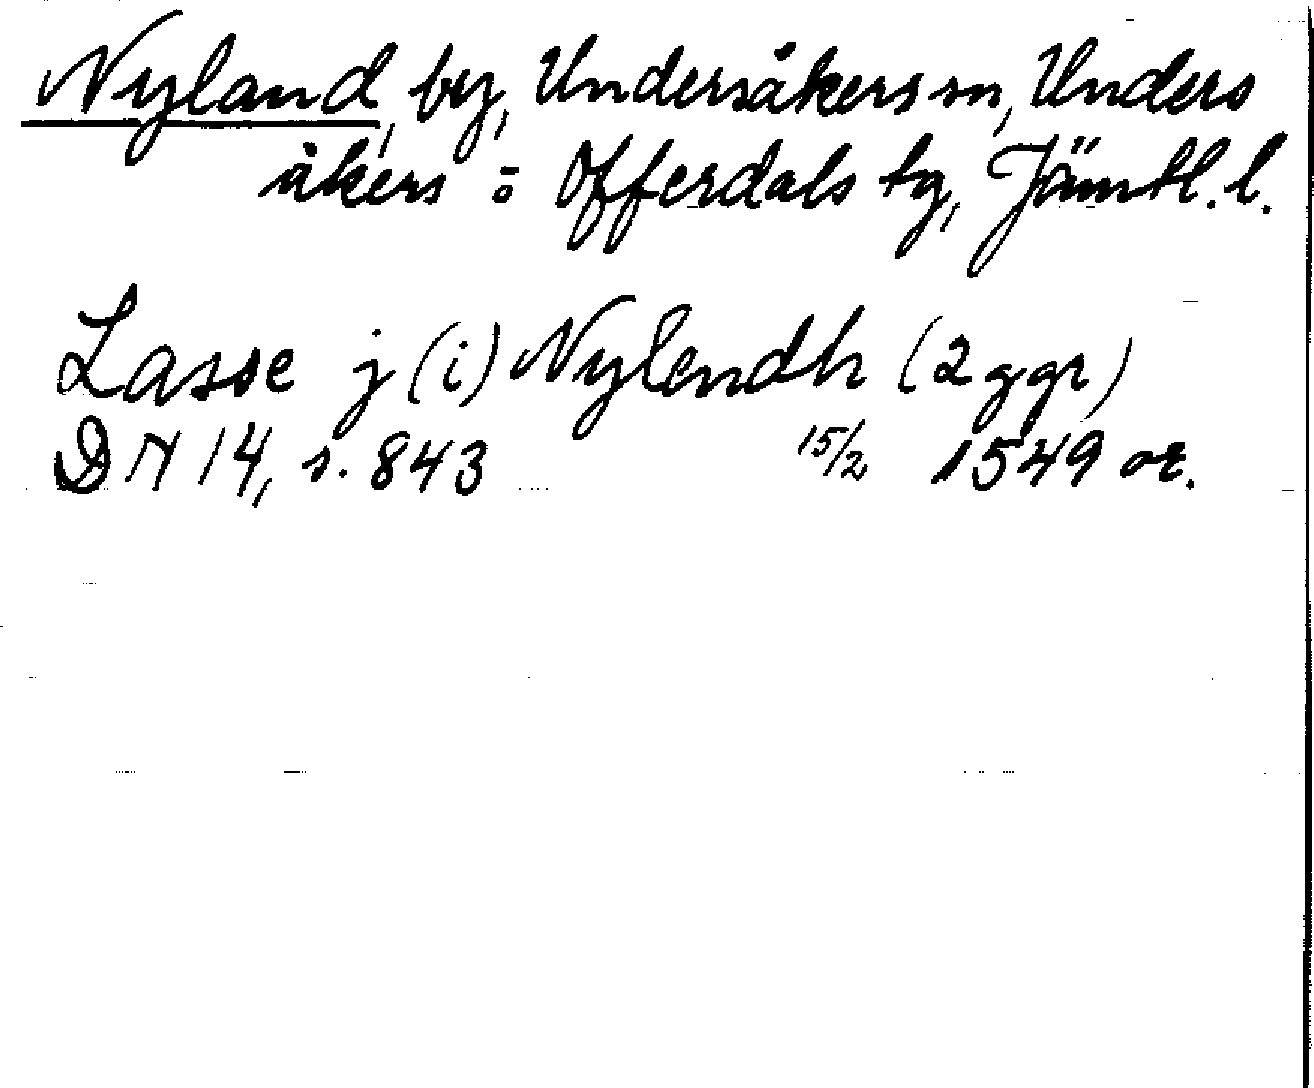 Nyland, by, Undersåkers sn, Unders
åkers o Offerdals tg, Jämtl. l.
Lasse j (i) Nylendh (2 ggr)
DN 14, s. 843 15/2 1549 or.